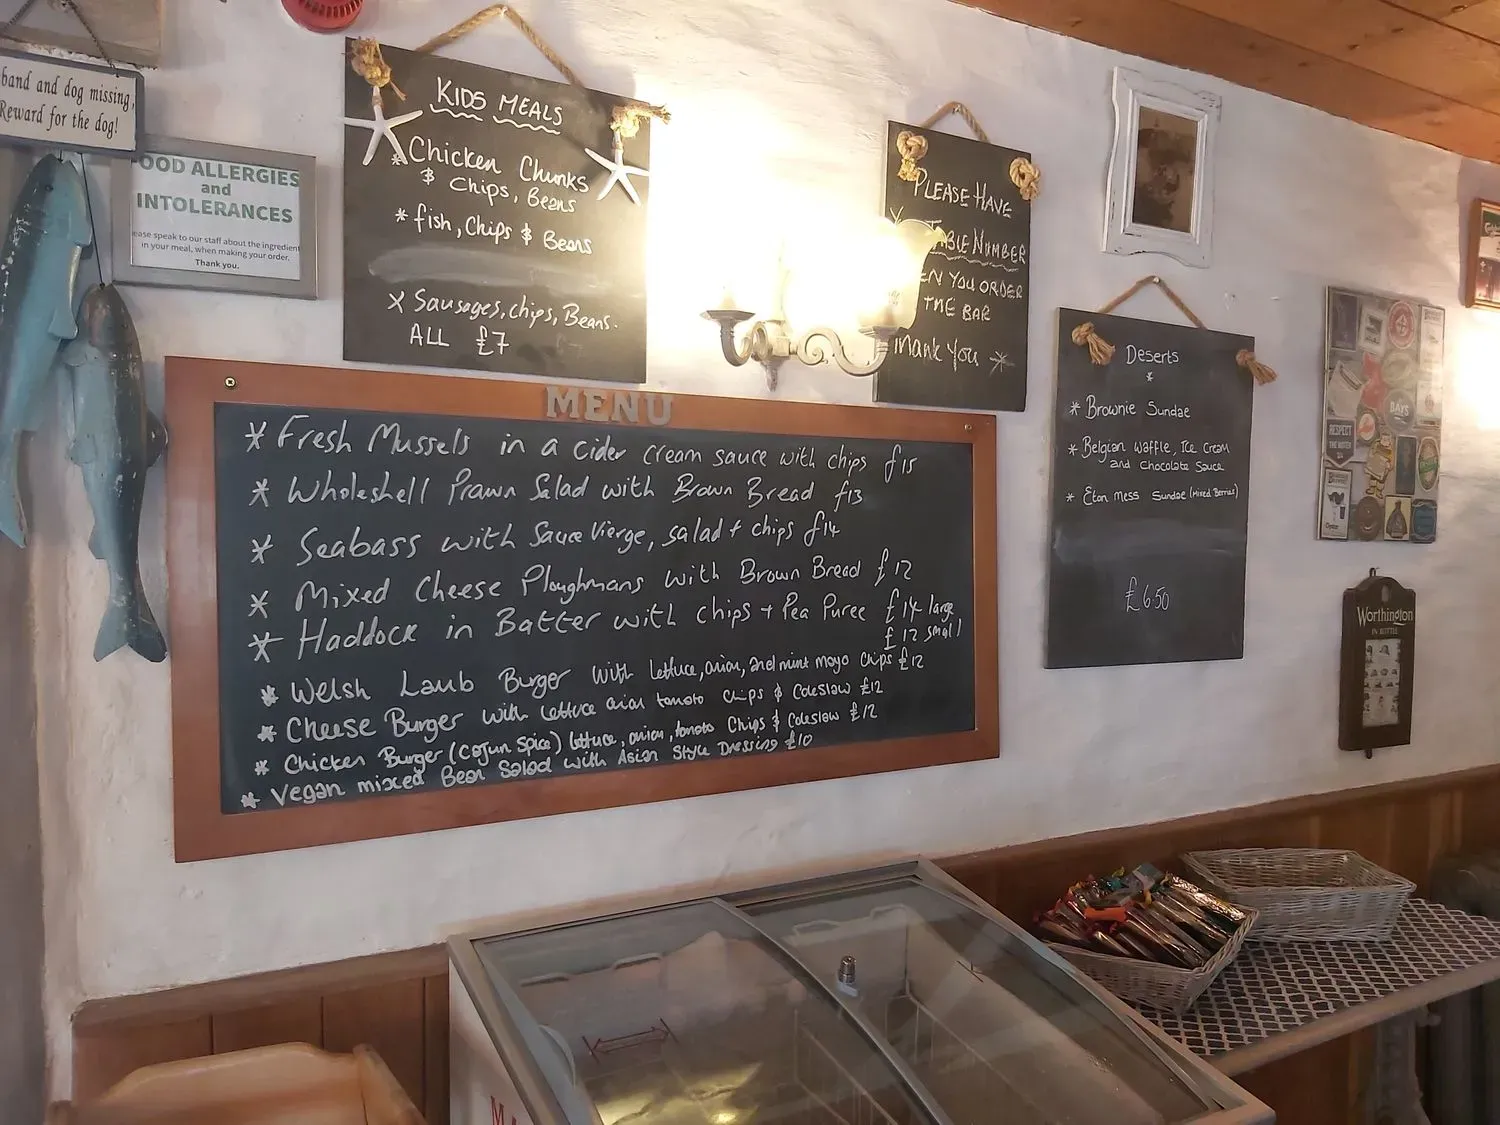 band and dog missing,
Reward for the dog!
OOD ALLERGIES
and
INTOLERANCES
ease speak to our staff about the ingredient
in your meal, when making your order.
Thank you.
KIDS MEALS
* Chicken Chunks
& Chips, Beans
* fish, Chips & Beans
x Sausages, chips, Beans.
ALL £7
PLEASE HAVE
TABLE NUMBER
EN YOU ORDER
THE BAR
Thank You *
MENU
* Fresh Mussels in a cider cream sauce with chips £15
* Wholeshell Prawn Salad with Brown Bread £13
* Seabass with Sauce Vierge, salad + chips £14
* Mixed Cheese Ploughmans with Brown Bread £12
* Haddock in Batter with chips + Pea Puree £14 large
£12 small
* Welsh Lamb Burger with lettuce, onion, and mint mayo Chips £12
* Cheese Burger with lettuce onion tomato chips & Coleslaw £12
* Chicken Burger (Cajun Spice) lettuce, onion, tomato Chips & Coleslaw £12
* Vegan mixed Bean Salad with Asian Style Dressing £10
Deserts
*
* Brownie Sundae
* Belgian Waffle, Ice Cream
and Chocolate Sauce
* Eton Mess Sundae (Mixed Berries)
£6.50
BAYS
RESPECT
Worthington
IN BOTTLE